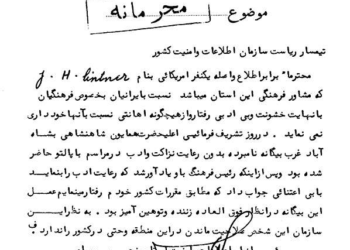 موضوع محرمانه
تیمسار ریاست سازمان اطلاعات وامنیت کشور
محترما" برابر اطلاع واصله یکنفر امریکائی بنام J. H. Lintner
که مشاور فرهنگی این استان میباشد نسبت بایرانیان بخصوص فرهنگیان
بانهایت خشونت وبی ادبی رفتار وازهیچگونه اهانتی نسبت بآنها خود داری
نمی نماید . در روز تشریف فرمائی اعلیحضرت همایون شاهنشاهی بشاه
آباد غرب بیگانه نامبرده بدون رعایت نزاکت وادب در مراسم باپالتو حاضر
شده بود وپس ازاینکه رئیس فرهنگ باو یادآور شد که رعایت ادب را بنماید با
بی اعتنائی جواب داد که مطابق مقررات کشور خود م رفتار مینمایم عمل
این بیگانه در انظار فوق العاده زننده وتوهین آمیز بود . به نظر این
سازمان این شخص صلاحیت ماندن در این منطقه وحتی در کشور راندارد